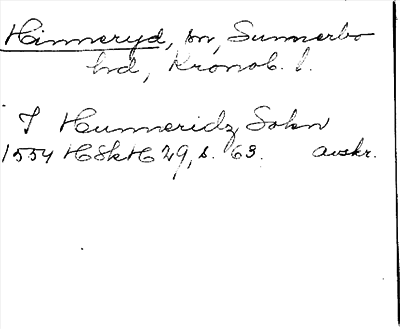 Hinneryd, sn, Sunnerbo
hd, Kronob. l.
I Hunneridz Sokn
1554 HSkH 29, s. 63. avskr.